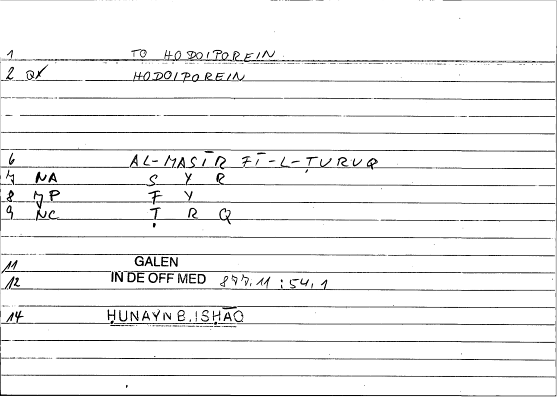 1 TO HODOIPOREIN
2 QX HODOIPOREIN
6 AL-MASĪR FĪ-L-ṬURUQ
7 NA S Y R
8 7P F Y
9 NC Ṭ R Q
11 GALEN
12 IN DE OFF MED 877.11 : 54,1
14 ḤUNAYN B. ISḤĀQ